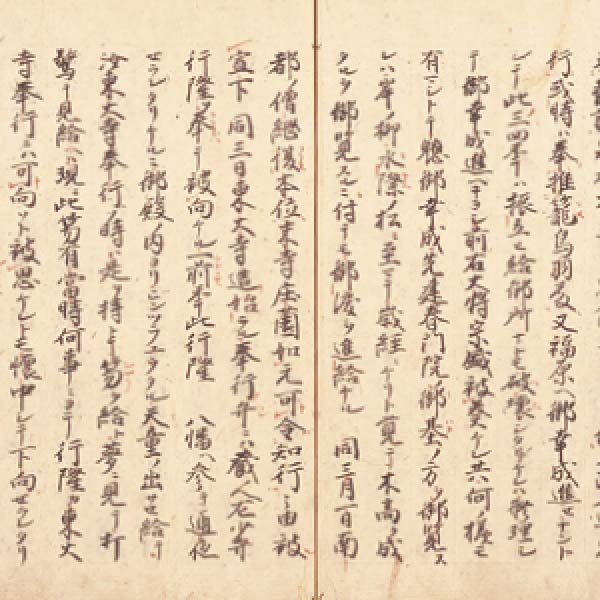 行或時ハ奉推籠鳥羽殿又福原ヘ御幸成進セナント
シテ此三四年ハ振立セ給御所サモ破壊シタリケレハ修理シ
テ御幸成進 前右大将宗盛被奏ケレ共何ノ様モ
有マシトテ怱御幸成先建春門院ノ御墓ノ方ヲ御覧ス
レハ岸ノ柳水際ノ松ニ至マテ歳経ケリト見ヘテ木高ク成
タルヲ御覧スルニ付テモ御涙ソ進給ケル 同三月一日南
都ノ僧綱復本位末寺庄園如元可令知行之由被
宣下同三日東大寺造始ラル奉行弁ニハ蔵人左少弁
行隆ソ奉テ被向ケル前年此行隆 八幡ヘ参テ通夜
セラレタリケルニ御殿ノ内ヨリビンツラユヒタル天童ノ出サセ給テ
汝東大寺奉行ノ時ハ是ヲ持ヘシトテ笏ヲ給ト夢ニ見テ打
驚テ見給ヘハ現ニ此笏有當時何事ニヨテ行隆カ東大
寺奉行ニハ可向ソト被思ケレトモ懐中シテ下向セラレタリ